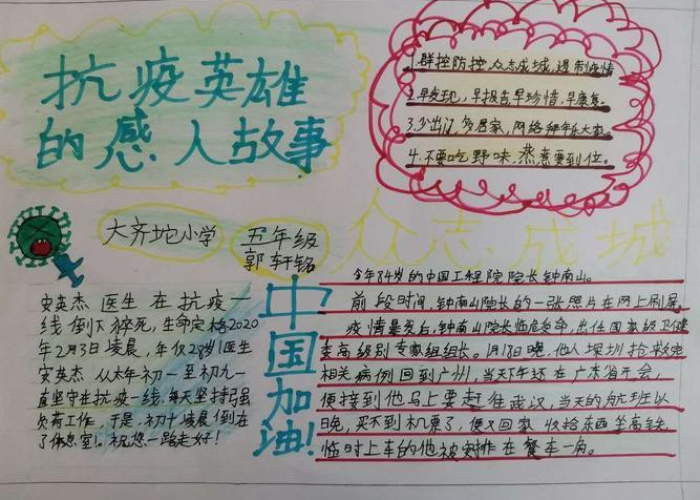 抗疫英雄
的感人故事
1.群控防控,众志成城,遏制疫情
2.早发现,早报告早珍惜,早康复.
3.少出门,多居家,网络拜年大家.
4.不要吃野味,煮意要到位.
众志成城
大齐地小学
五年级
郭轩铭
安英杰 医生 在 抗疫一
线 倒下 猝死,生命定格2020
年2月3日凌晨,年仅28岁!医生
安英杰 从大年初一至初九一
直坚守在抗疫一线,每天坚持强
负荷工作,于是,初十凌晨倒在
了休息室!.祝您一路走好!
中国加油!
今年84岁的中国工程院院长钟南山。
前段时间,钟南山院长的一张照片在网上刷屏
疫情暴发后,钟南山院长临危受命,出任国家级卫健
委高级别专家组组长。1月18日晚,他人深圳抢救完
相关病例回到广州,当天下午还在广东省开会,
便接到他马上要赶往武汉,当天的航班以
晚,买不到机票了,便又回家 收拾东西坐高铁
临时上车的他被安排在餐车一角。